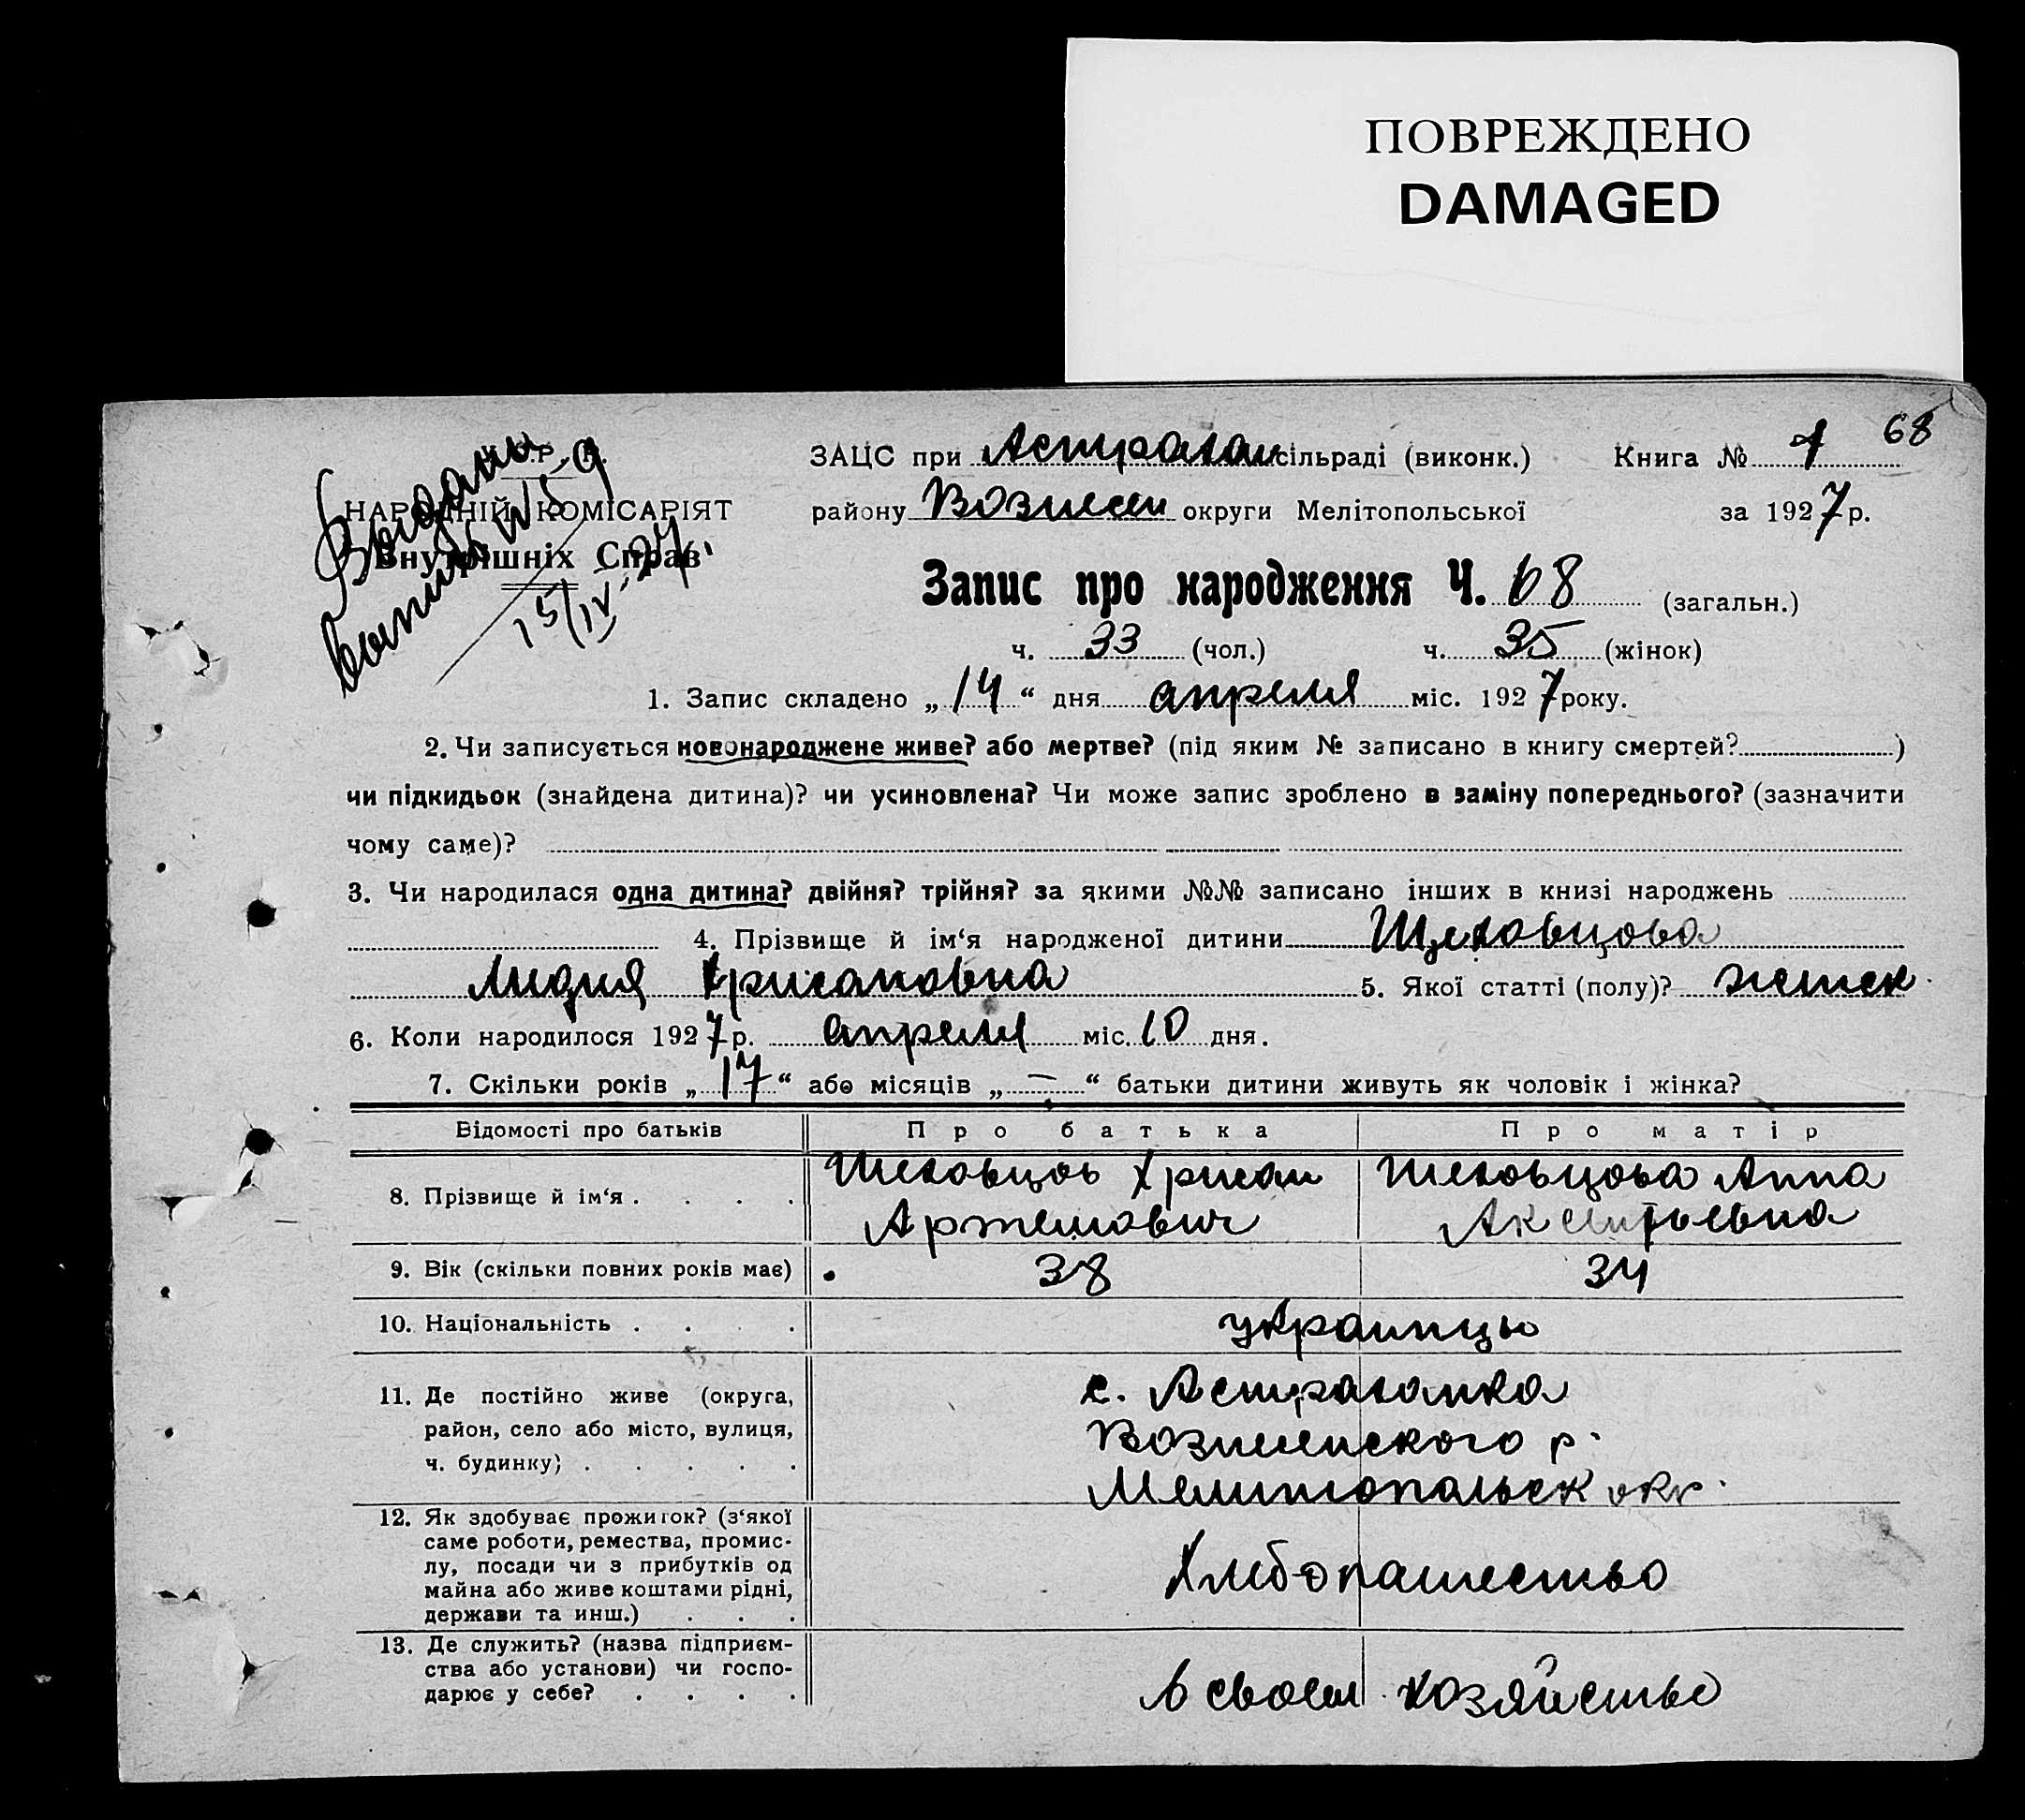 ПОВРЕЖДЕНО
DAMAGED
68
ЗАЦС при Астрахан сільраді (виконк.) Книга №
району Вознесен округи Мелітопольської за 1927 р.
НАРОДНІЙ КОМІСАРІЯТ
Внутрішніх Справ
Выдана
выпись № 59
15/IV-27.
Запис про народження Ч. 68 (загальн.)
ч. 33 (чол.) ч. 35 (жінок)
1. Запис складено „14“ дня апреля міс. 1927 року.
2. Чи записується новонароджене живе? або мертве? (під яким № записано в книгу смертей? )
чи підкидьок (знайдена дитина)? чи усиновлена? Чи може запис зроблено в заміну попереднього? (зазначити
чому саме)?
3. Чи народилася одна дитина? двійня? трійня? за якими №№ записано інших в книзі народжень
4. Прізвище й ім‘я народженої дитини Шеховцова
Лидия Хрисановна 5. Якої статті (полу)? женск.
6. Коли народилося 1927 р. апреля міс. 10 дня.
7. Скільки років „17“ або місяців „—“ батьки дитини живуть як чоловік і жінка?
Відомості про батьків Про батька Про матір
8. Прізвище й ім‘я . . . . Шеховцов Хрисан Шеховцова Анна
Артемович Аксентьевна
9. Вік (скільки повних років має) 38 34
10. Національність . . . . украинцы
11. Де постійно живе (округа, с. Астраханка
район, село або місто, вулиця, Вознесенского р.
ч. будинку) . . . . . Мелитопольск окр.
12. Як здобуває прожиток? (з‘якої
саме роботи, ремества, промис-
лу, посади чи з прибутків од Хлебопашество
майна або живе коштами рідні,
держави та инш.) . . .
13. Де служить? (назва підприєм-
ства або установи) чи госпо- в своем хозяйстве
дарює у себе? . . . .